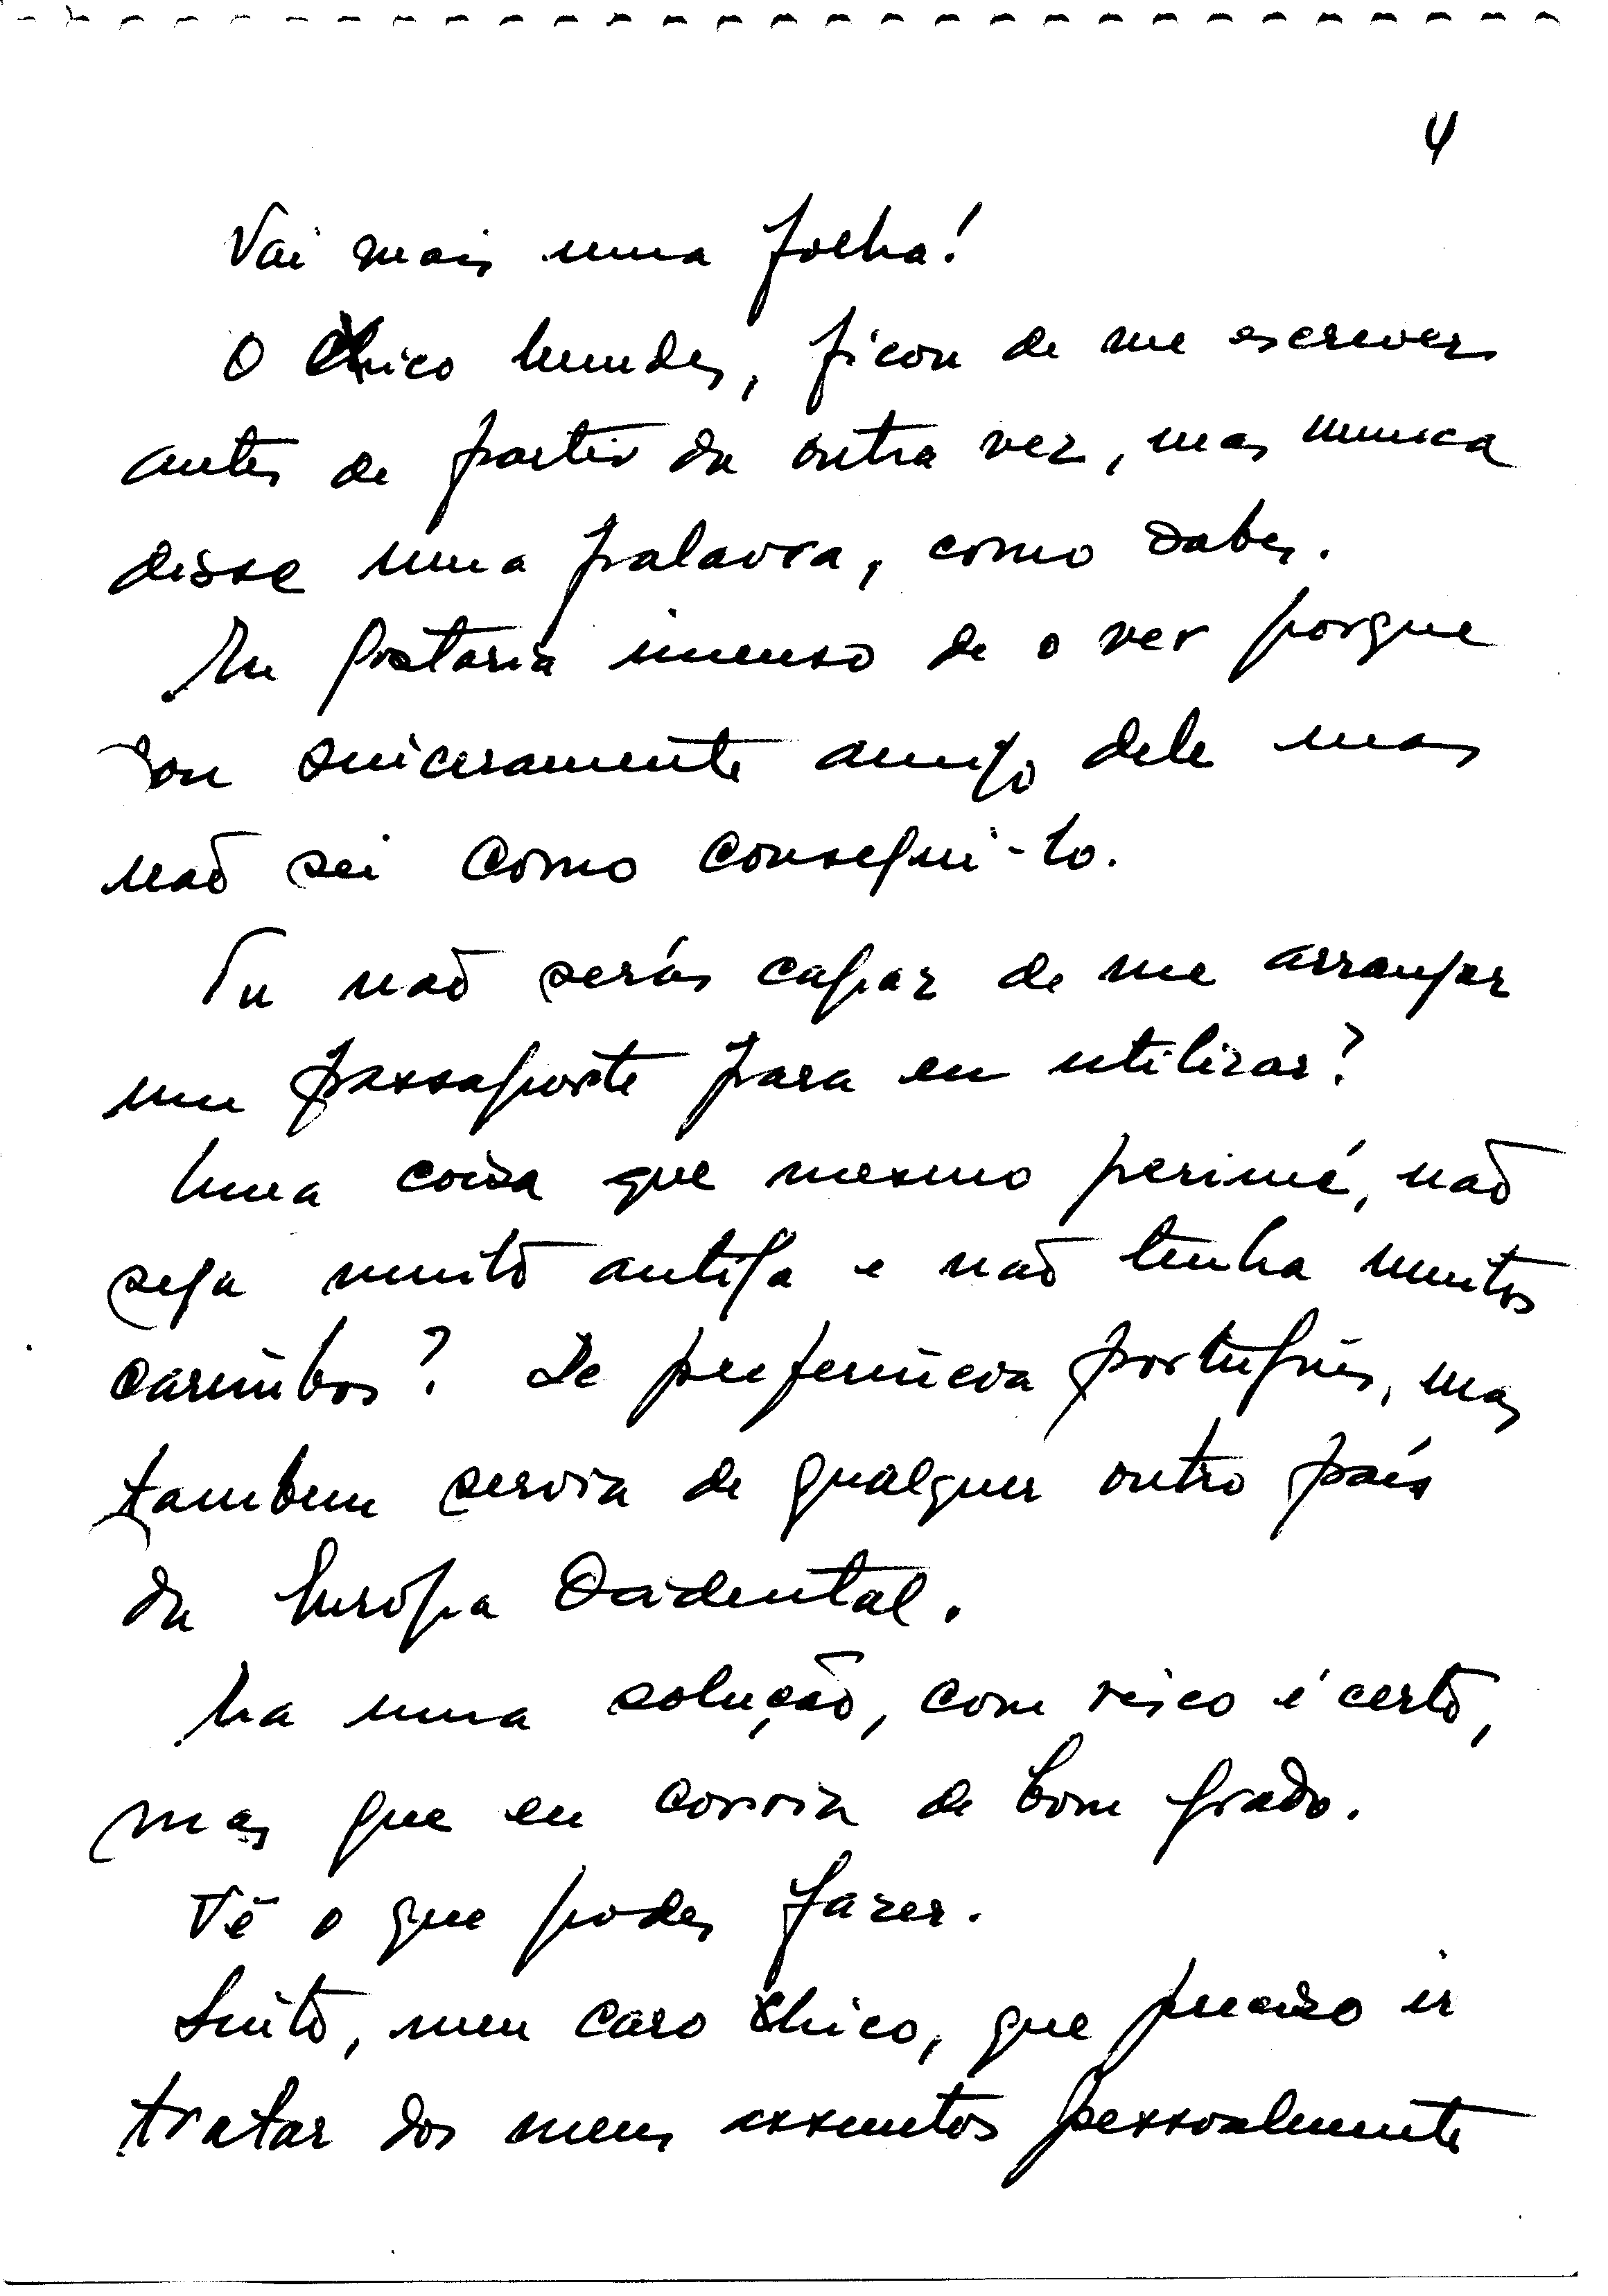 4
Vai mais uma folha!
O Chico Mendes, ficou de me escrever
antes de partir da outra vez, mas nunca
disse uma palavra, como sabes.
Eu gostaria imenso de o ver porque
sou sinceramente amigo dele mas
não sei como consegui-lo.
Tu não serás capaz de me arranjar
um passaporte para eu utilizar?
Uma coisa que mesmo perimé, não
seja muito antiga e não tenha muitos
carimbos? De preferência português, mas
tambem servia de qualquer outro país
da Europa Ocidental.
Ha uma solução, com risco é certo,
mas que eu corria de bom grado.
Vê o que podes fazer.
Sinto, meu caro Chico, que preciso ir
tratar dos meus assuntos pessoalmente